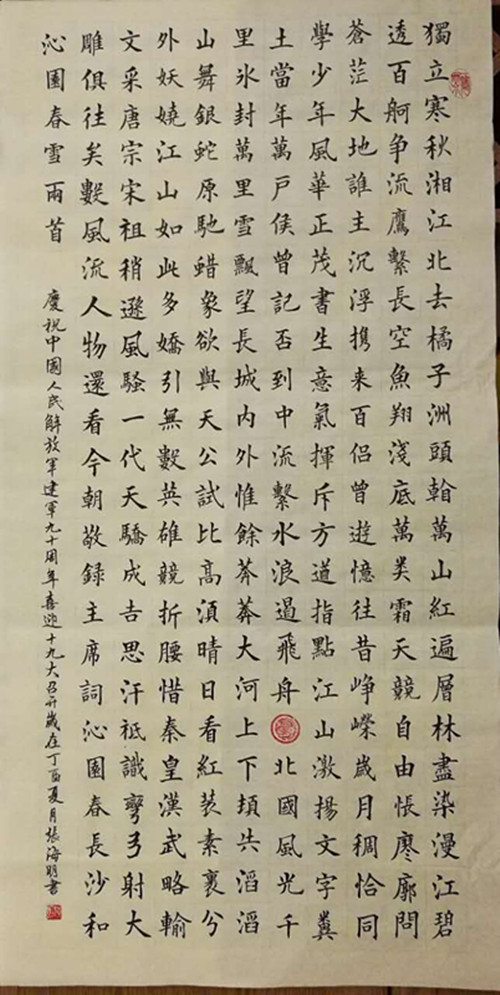 獨立寒秋湘江北去橘子洲頭翰萬山紅遍層林盡染漫江碧
透百舸争流鷹繫長空魚翔淺底萬类霜天競自由悵廖廓問
蒼茫大地誰主沉浮携来百侣曾遊憶往昔峥嶸歲月稠恰同
學少年風華正茂書生意氣揮斥方道指點江山激揚文字糞
土當年萬户侯曾記否到中流繫水浪過飛舟 北國風光千
里氷封萬里雪飄望長城内外惟餘莽莽大河上下頓失滔滔
山舞銀蛇原馳蜡象欲與天公試比高湏晴日看紅裝素裹兮
外妖嬈江山如此多嬌引無數英雄競折腰惜秦皇漢武略輸
文采唐宗宋祖稍遜風騷一代天驕成吉思汗祗識彎弓射大
雕俱往矣數風流人物還看今朝敬録主席詞沁園春長沙和
沁園春雪兩首
慶祝中國人民解放軍建軍九十周年喜迎十九大召开歲在丁酉夏月張海明書